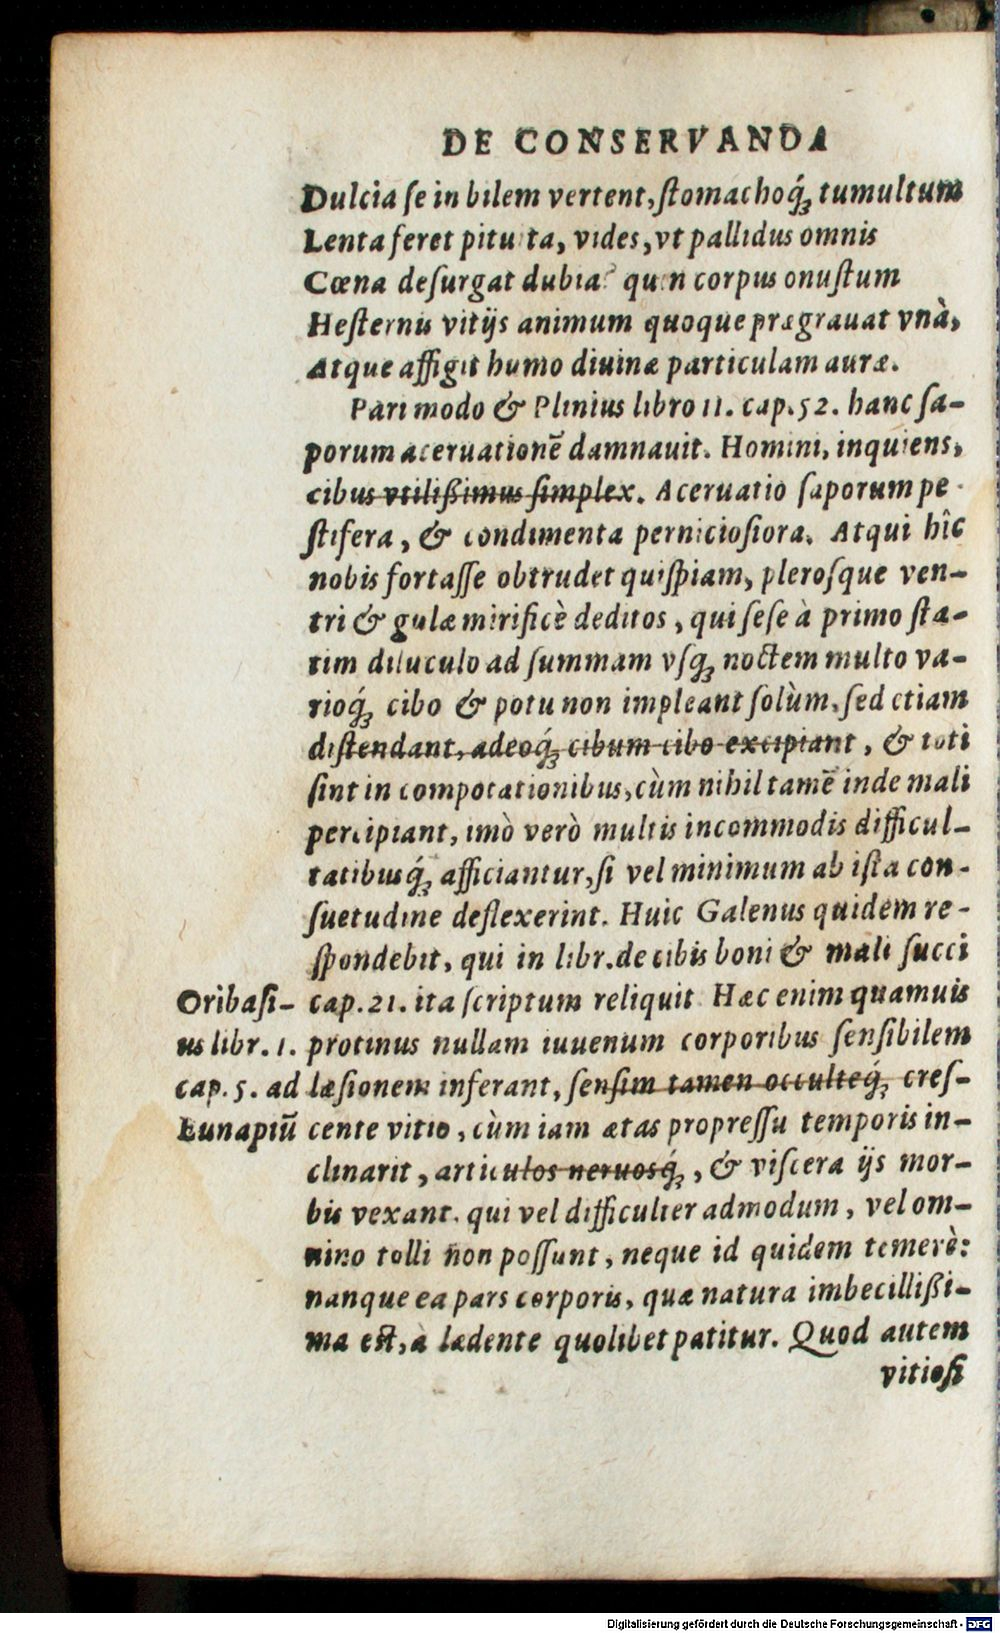 DE CONSERVANDA
Dulcia ſe in bilem vertent, ſtomachoq́ꝫ tumultum
Lenta feret pituita, vides, vt pallidus omnis
Cœna deſurgat dubia? quin corpus onuſtum
Heſternis vitijs animum quoque prægrauat vnà,
Atque affigit humo diuinæ particulam auræ.
Pari modo & Plinius libro 11. cap. 52. hanc ſa-
porum aceruationē damnauit. Homini, inquiens,
cibus vtilißimus ſimplex. Aceruatio ſaporum pe-
ſtifera, & condimenta pernicioſiora. Atqui hîc
nobis fortaſſe obtrudet quiſpiam, pleroſque ven-
tri & gulæ mirificè deditos, qui ſeſe à primo ſta-
tim diluculo ad ſummam vſq́ꝫ noctem multo va-
rioq́ꝫ cibo & potu non impleant ſolùm, ſed etiam
diſtendant, adeoq́ꝫ cibum cibo excipiant, & toti
ſint in compotationibus, cùm nihil tamē inde mali
percipiant, imò verò multis incommodis difficul-
tatibusq́ꝫ afficiantur, ſi vel minimum ab iſta con-
ſuetudine deflexerint. Huic Galenus quidem re-
ſpondebit, qui in libr. de cibis boni & mali ſucci
Oribaſi- cap. 21. ita ſcriptum reliquit. Hæc enim quamuis
us libr. 1. protinus nullam iuuenum corporibus ſenſibilem
cap. 5. ad læſionem inferant, ſenſim tamen occulteq́ꝫ creſ-
Eunapiū cente vitio, cùm iam ætas propreſſu temporis in-
clinarit, articulos neruosq́ꝫ, & viſcera ijs mor-
bis vexant. qui vel difficulter admodum, vel om-
nino tolli non poſſunt, neque id quidem temerè:
nanque ea pars corporis, quæ natura imbecillißi-
ma eſt, à lædente quolibet patitur. Quod autem
vitioſi
Digitalisierung gefördert durch die Deutsche Forschungsgemeinschaft - DFG